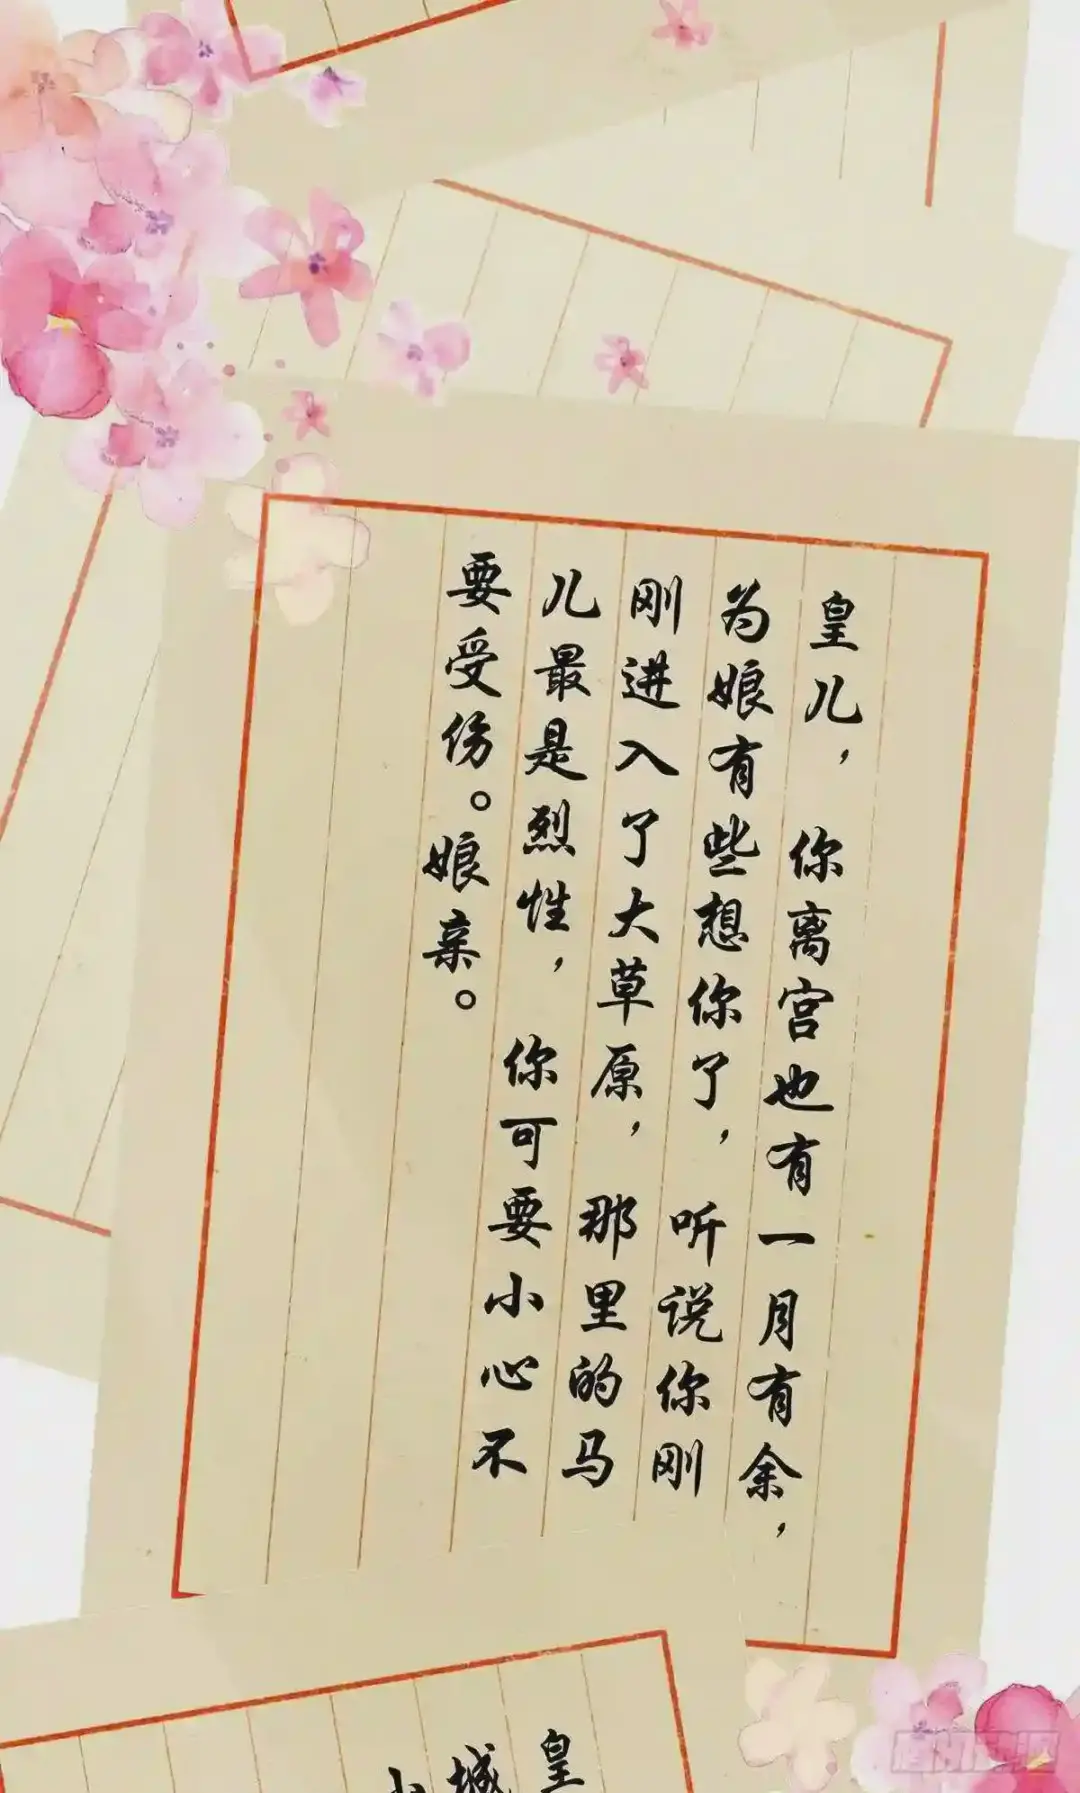 皇儿，你离宫也有一月有余，
为娘有些想你了，听说你刚
刚进入了大草原，那里的马
儿最是烈性，你可要小心不
要受伤。娘亲。
皇
城